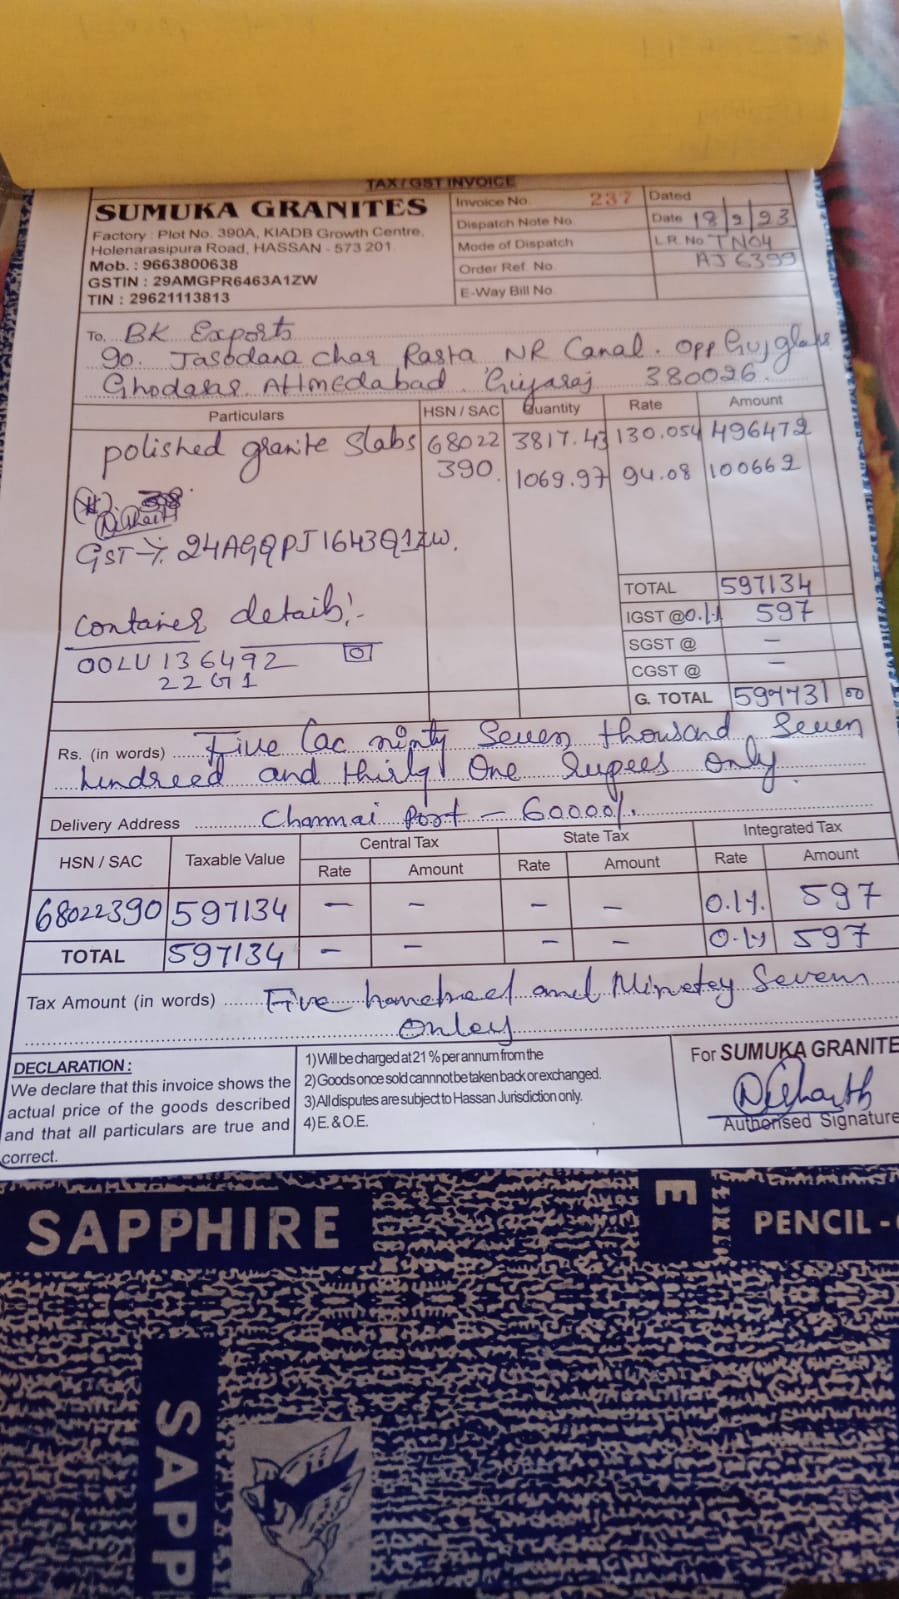 TAX / GST INVOICE
SUMUKA GRANITES
Factory : Plot No. 390A, KIADB Growth Centre,
Holenarasipura Road, HASSAN - 573 201.
Mob. : 9663800638
GSTIN : 29AMGPR6463A1ZW
TIN : 29621113813
Invoice No. 237
Dispatch Note No.
Mode of Dispatch
Order Ref. No.
E-Way Bill No.
Dated
Date 18/9/23
L.R. No TN04
AJ 6399
To, BK Exports
90. Jasodara char Rasta NR Canal. opp Guj glass
Ghodasar Ahmedabad. 380026.
Particulars HSN / SAC Quantity Rate Amount
polished granite Slabs 68022 3817.43 130.054 496472
390. 1069.97 94.08 100662
GST 24AGQPJ1643Q1ZW.
Container details:-
OOLU 136492 0
22G1
TOTAL 597134
IGST @0.1% 597
SGST @ -
CGST @ -
G. TOTAL 597731 00
Rs. (in words) Five Lac ninty Seven thousand Seven
hundreed and thirty One Rupees only.
Delivery Address Chennai Port - 60000/.
HSN / SAC Taxable Value Central Tax State Tax Integrated Tax
Rate Amount Rate Amount Rate Amount
68022390 597134 - - - - 0.1%. 597
TOTAL 597134 - - - - 0.1% 597
Tax Amount (in words) Five hundred and Ninety Seven
Only
DECLARATION :
We declare that this invoice shows the
actual price of the goods described
and that all particulars are true and
correct.
1) Will be charged at 21 % per annum from the
2) Goods once sold cannnot be taken back or exchanged.
3) All disputes are subject to Hassan Jurisdiction only.
4) E. & O.E.
For SUMUKA GRANITE
Authorised Signature
SAPPHIRE
E
PENCIL -
SAPP